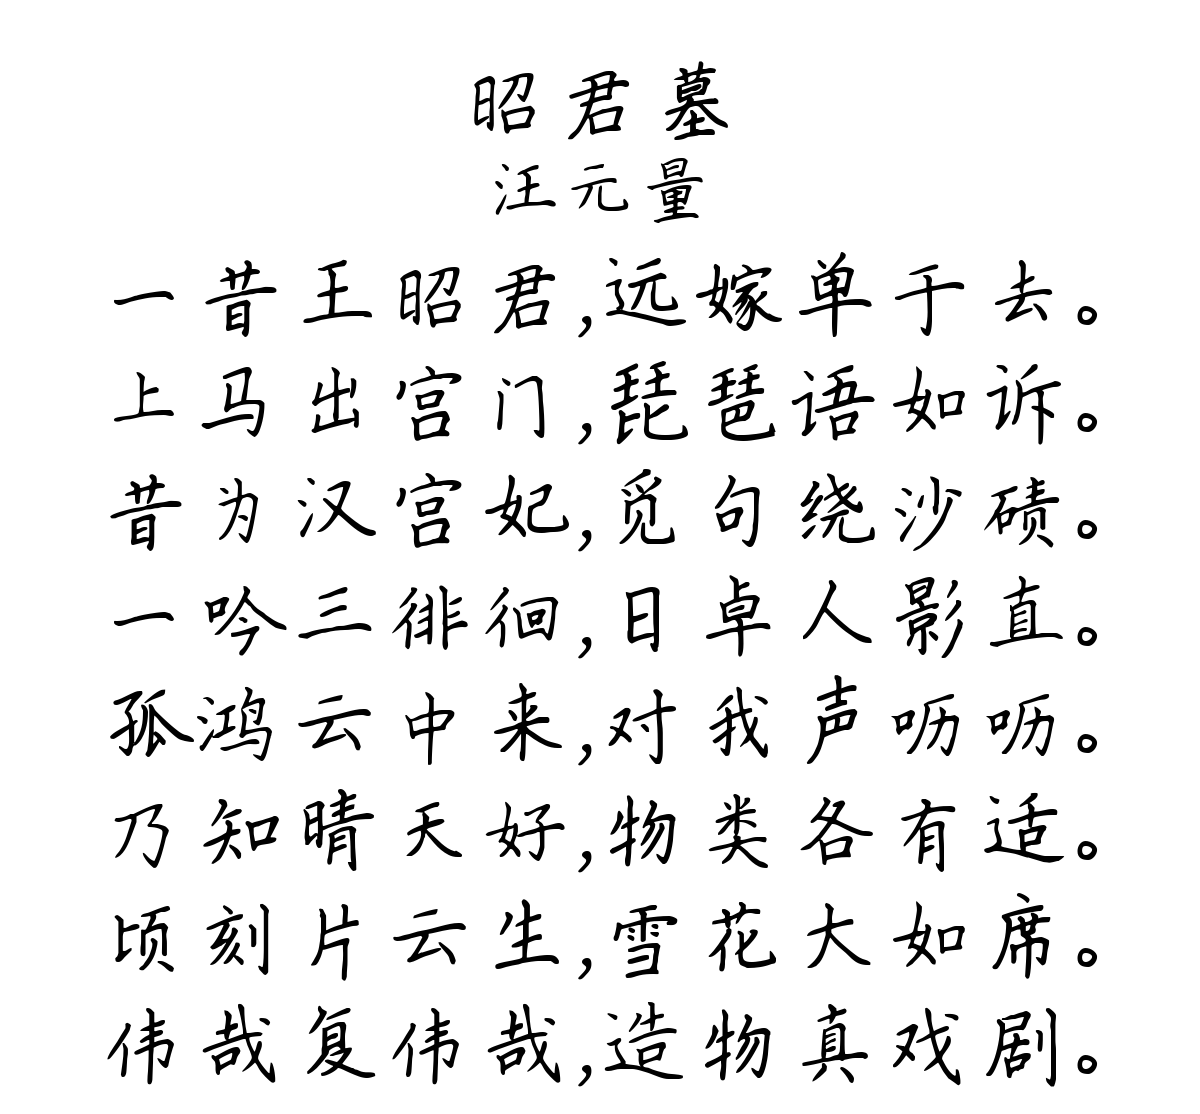 昭君墓
汪元量
一昔王昭君,远嫁单于去。
上马出宫门,琵琶语如诉。
昔为汉宫妃,觅句绕沙碛。
一吟三徘徊,日卓人影直。
孤鸿云中来,对我声呖呖。
乃知晴天好,物类各有适。
顷刻片云生,雪花大如席。
伟哉复伟哉,造物真戏剧。